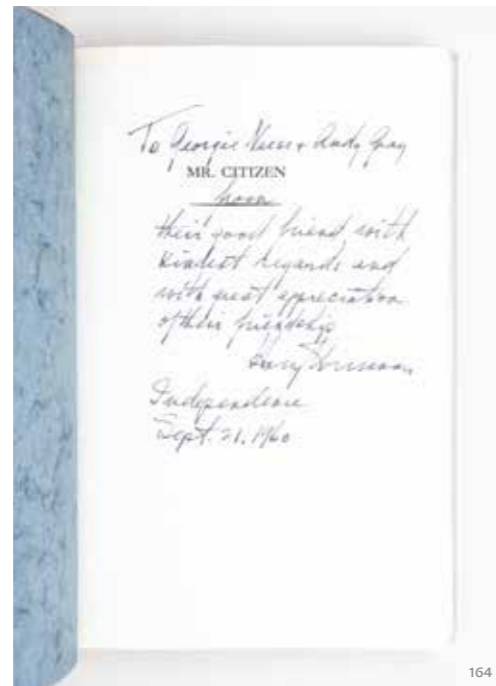 To Georgie Neese & Andy Gray
MR. CITIZEN
from
their good friend with
kindest regards and
with great appreciation
of their friendship
Harry Truman
Independence
Sept. 21, 1960
164